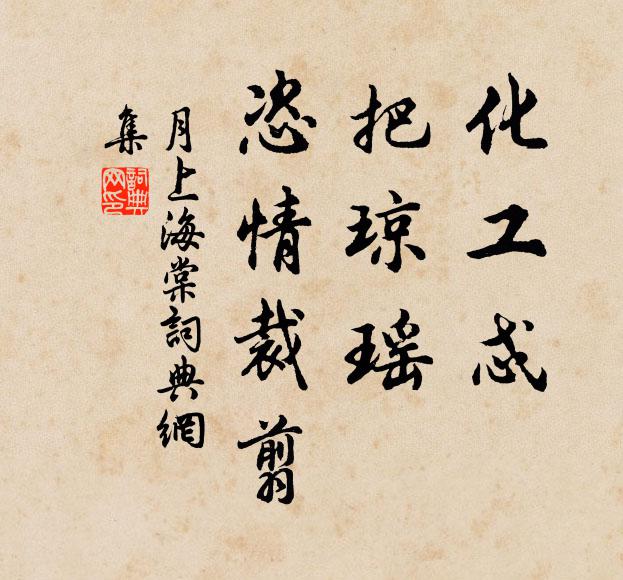 化工忒
把琼瑶
恣情裁翦
月上海棠詞典網
集
詞典
网印